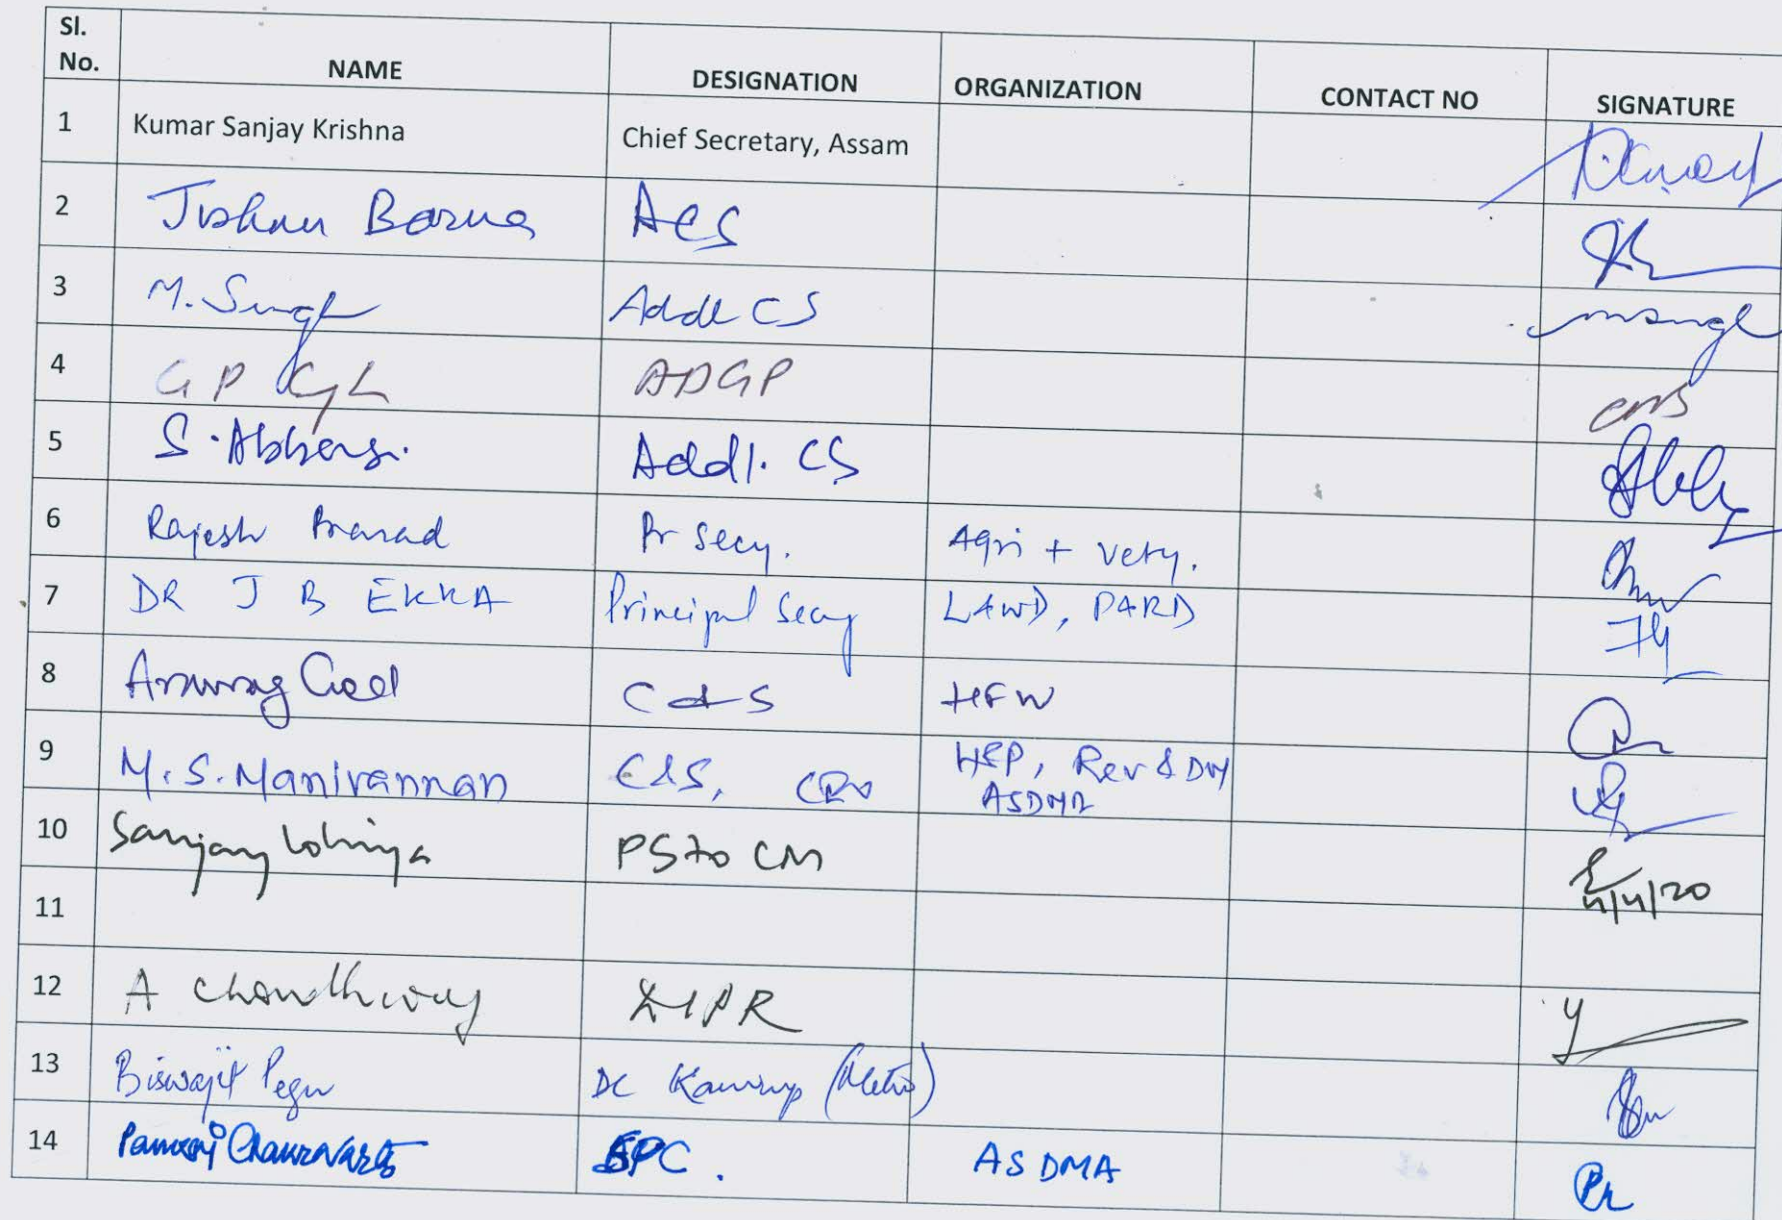 Sl. No. NAME DESIGNATION ORGANIZATION CONTACT NO SIGNATURE
1 Kumar Sanjay Krishna Chief Secretary, Assam
2 Jishnu Barua ACS
3 M. Singh Addl CS
4 G P ADGP
5 S. Abbasi. Addl. CS
6 Rajesh Prasad Pr Secy. Agri + Vety.
7 DR J B EKKA Principal Secy LAWD, PARD
8 Anurag Goel C & S HFW
9 M.S. Manivannan C&S, CEO Rev & DM
ASDMA
10 Sanjay Lohiya PS to CM 4/4/20
11
12 A Chowdhury DIPR
13 Biswajit Pegu DC Kamrup (Metro)
14 Pankaj Chakravarty SPC. ASDMA